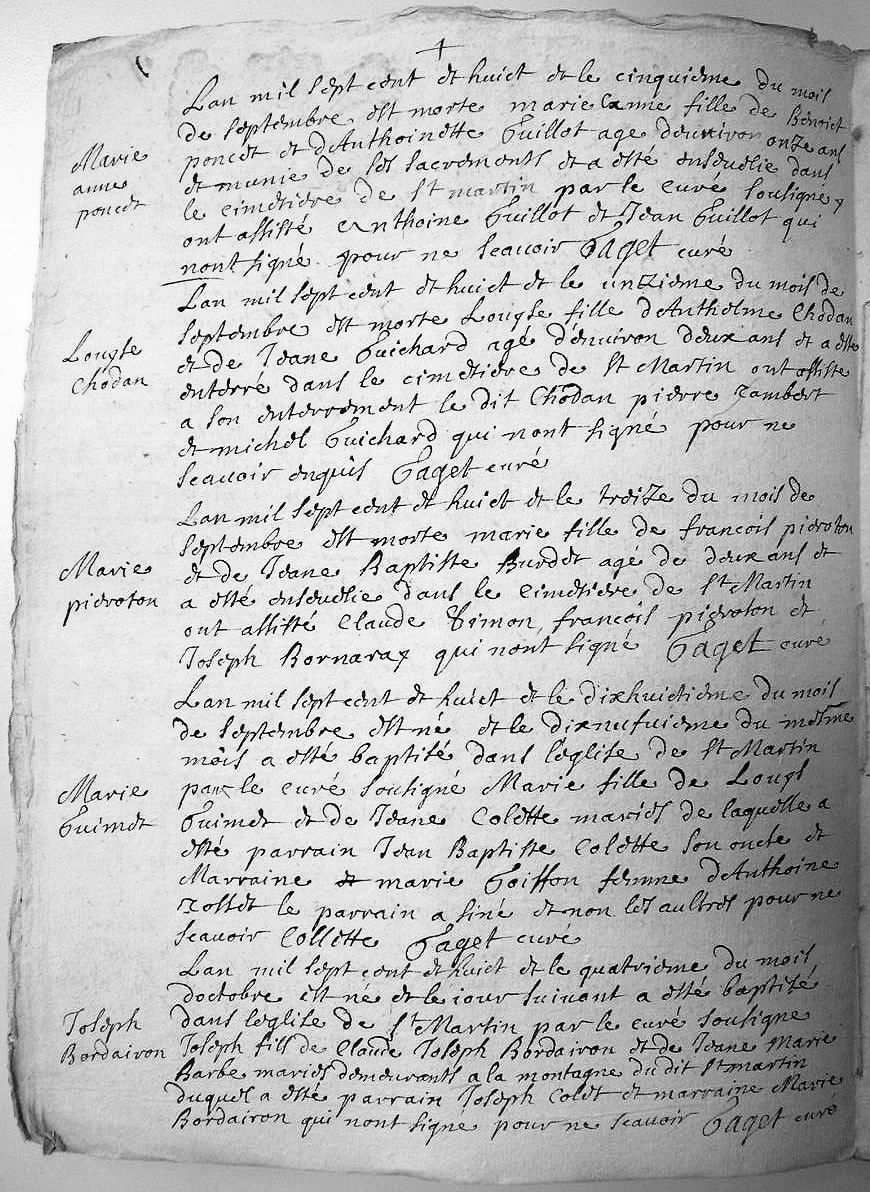 Lan mil sept cent et huict et le cinquieme du mois
de septembre est morte marie anne fille de Benoict
poncet et dAnthoinette Guillot age denviron onze ans
et munie de ses sacrements et a esté ensevelie dans
le cimetiere de St martin par le curé soussigné y
ont assisté Anthoine Guillot et Jean Guillot qui
nont signé pour ne scavoir Gaget curé
Marie
anne
poncet
Lan mil sept cent et huict et le unzieme du mois de
septembre est morte Louyse fille dAnthelme Chodan
et de Jeane Guichard agé denviron deux ans et a esté
enterré dans le cimetiere de St Martin ont assisté
a son enterrement le dit Chodan pierre Jambert
et michel Guichard qui nont signé pour ne
scavoir enquis Gaget curé
Louyse
Chodan
Lan mil sept cent et huict et le treize du mois de
septembre est morte marie fille de francois pieroton
et de Jeane Baptiste Burdet agé de deux ans et
a esté ensevelie dans le cimetiere de St Martin
ont assisté Claude Simon francois pieroton et
Joseph Bornaray qui nont signé Gaget curé
Marie
pieroton
Lan mil sept cent et huict et le dixhuictieme du mois
de septembre est né et le dixnufuieme du mesme
mois a esté baptisé dans léglise de St Martin
par le curé soussigné Marie fille de Louys
Guimet et de Jeane Colette mariés de laquelle a
esté parrain Jean Baptiste Colette son oncle et
Marraine et marie Goiffon femme dAnthoine
Josset le parrain a siné et non les aultres pour ne
scavoir Collette Gaget curé
Marie
Guimet
Lan mil sept cent et huict et le quatrieme du mois
doctobre est né et le iour suivant a esté baptisé
dans léglise de St Martin par le curé sousigne
Joseph fils de Claude Joseph Bordairon et de Jeane Marie
Barbe mariés demeurants a la montagne du dit St martin
duquel a esté parrain Joseph Colet et marraine Marie
Bordairon qui nont signe pour ne scavoir Gaget curé
Joseph
Bordairon